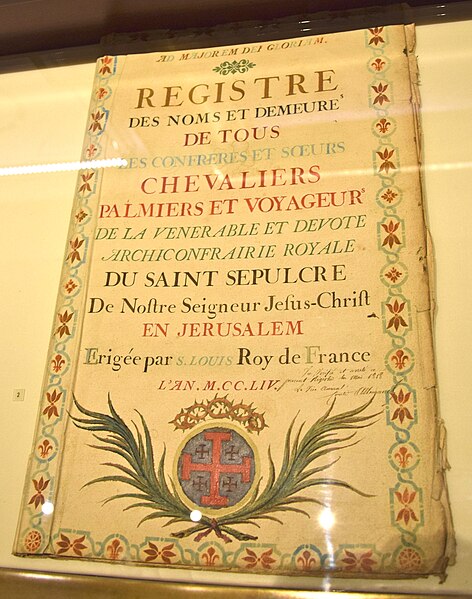 AD MAJOREM DEI GLORIAM.
REGISTRE
DES NOMS ET DEMEURES
DE TOUS
LES CONFRERES ET SŒURS
CHEVALIERS
PALMIERS ET VOYAGEURS
DE LA VENERABLE ET DEVOTE
ARCHICONFRAIRIE ROYALE
DU SAINT SEPULCRE
De Noſtre Seigneur Jeſus-Chriſt
EN JERUSALEM
Erigée par S. LOUIS Roy de France
L'AN. M.CC.LIV.